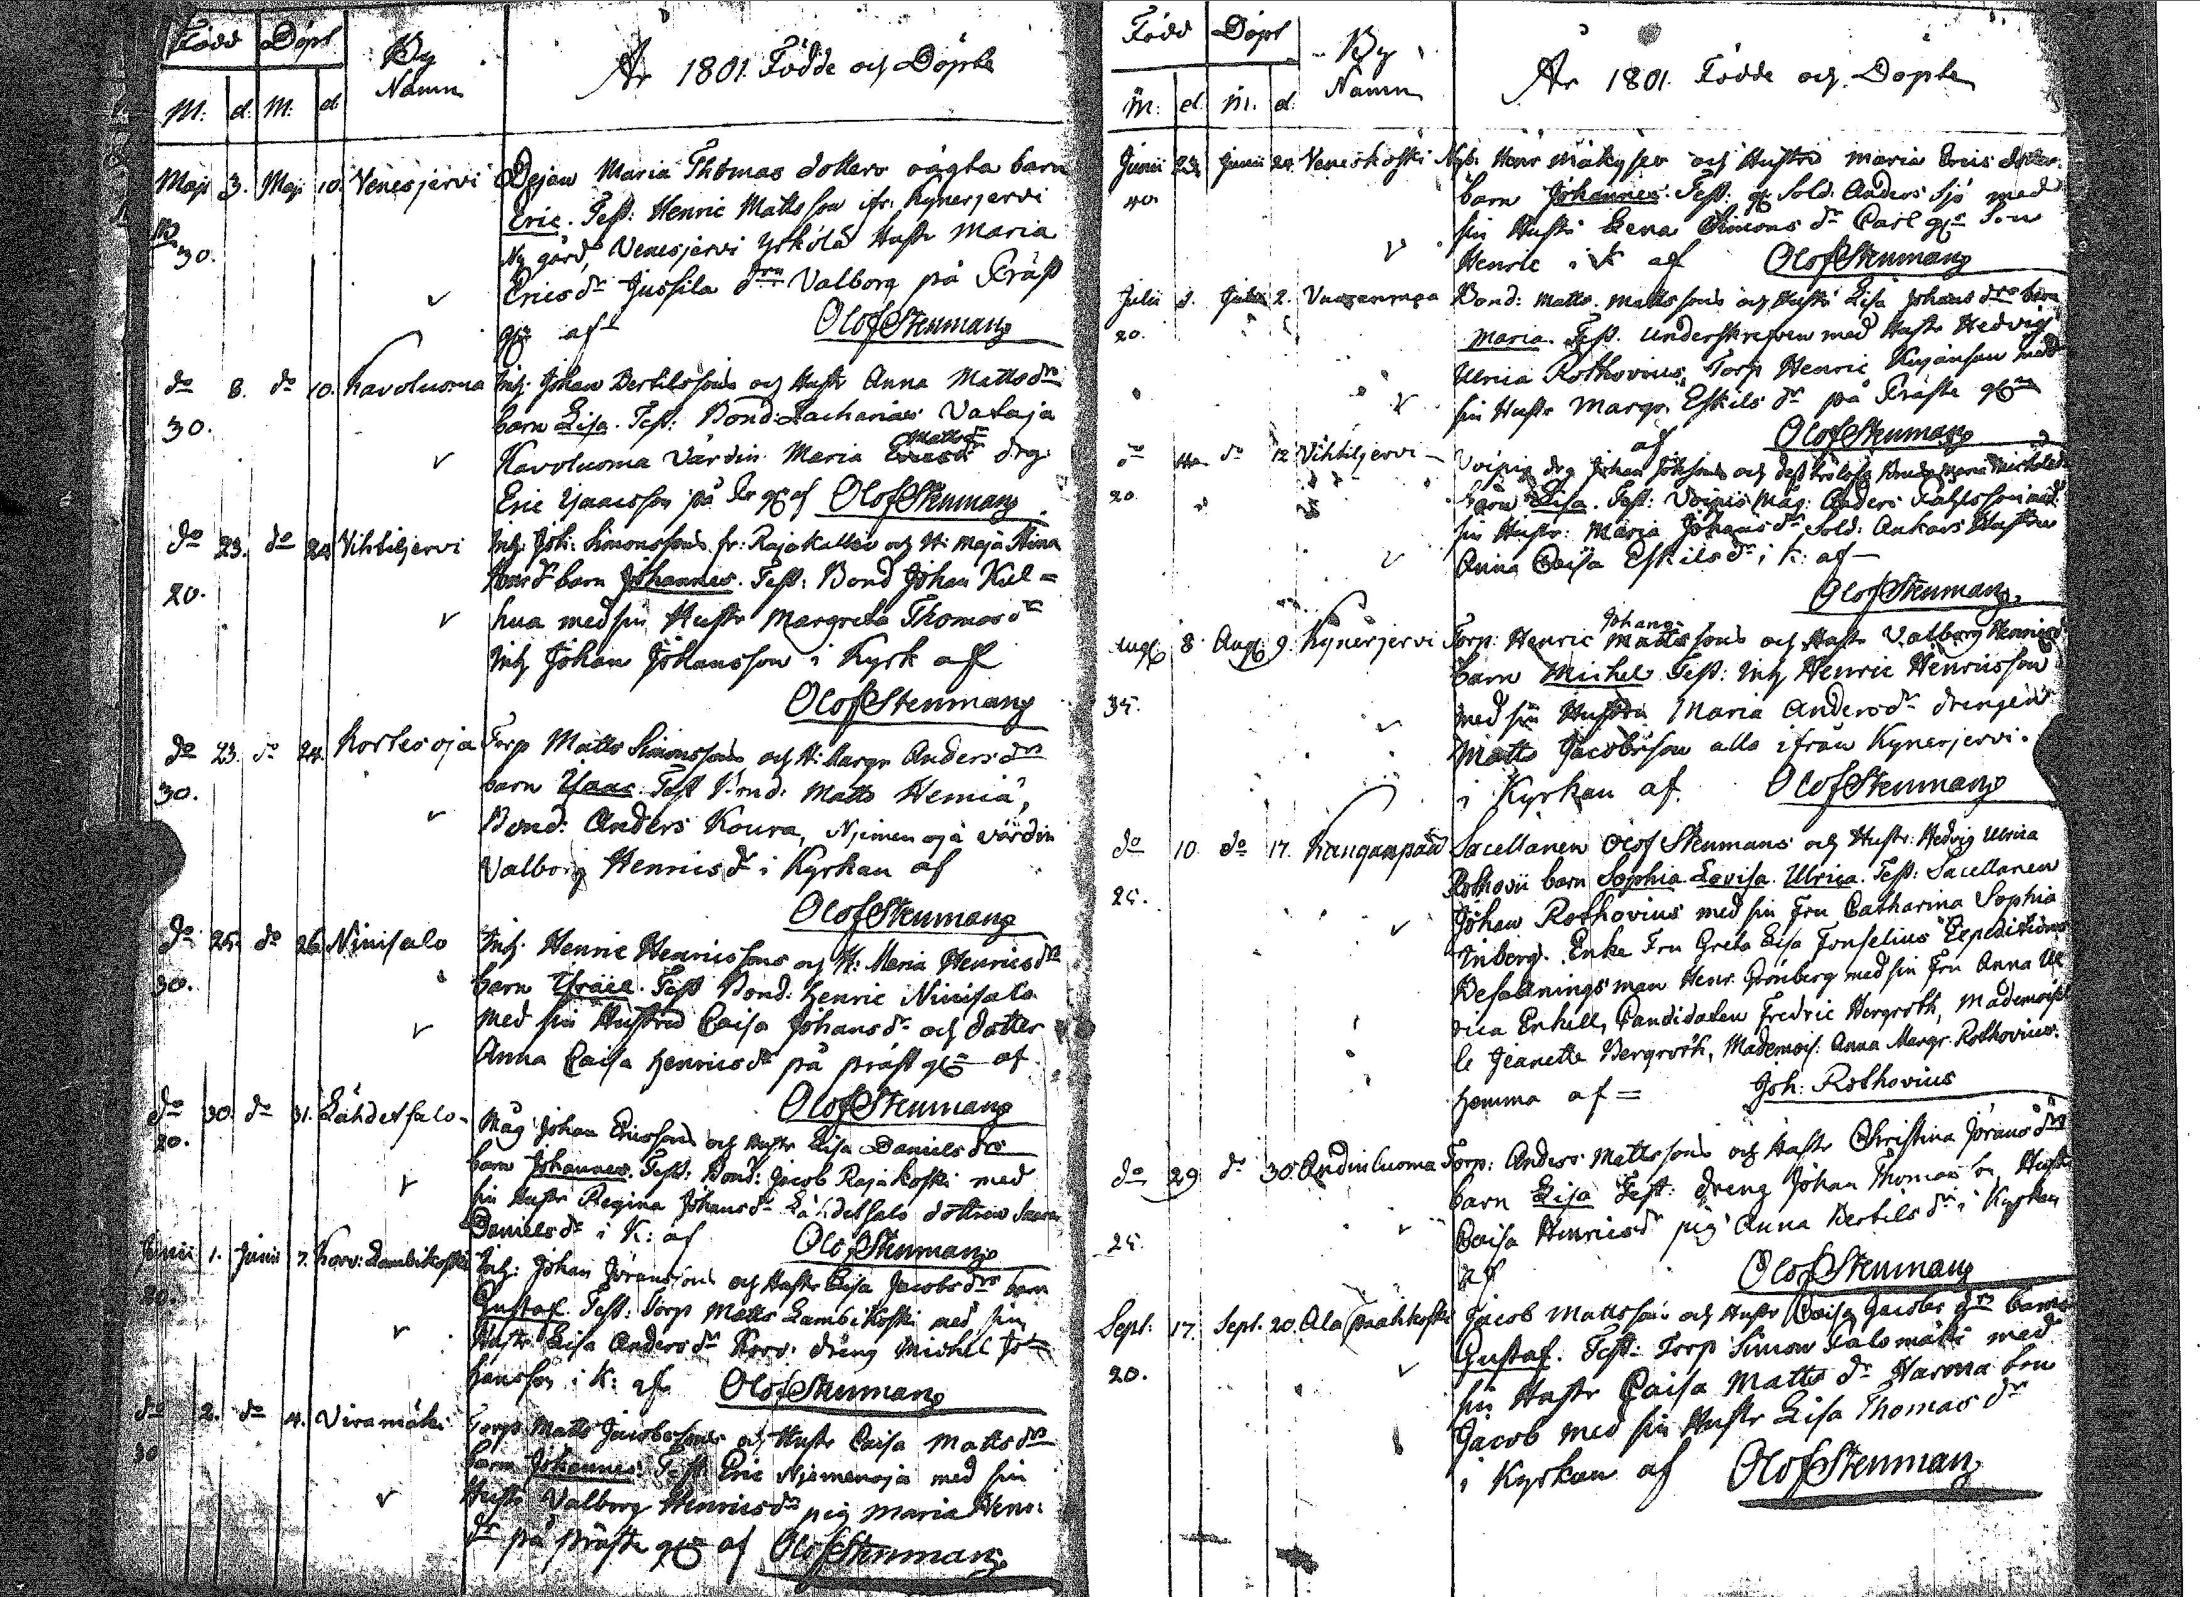 Född Döpt By Namn År 1801. Födde och Döpte
M: d. M: d
Maji 3. Maji 10. Venesjervi Pigan Maria Thomas dotters oägta barn
Eric. Test: Henric Mattsson ifr: Kynerjervi
30. Ny gård, Venesjervi Yrkölä Hustr Maria
Erics dr Jussila drn Valborg på Präst
af Olof Stenman
do 8. do 10. Kavoluoma Inh. Johan Bertilssons och Hustr Anna Matts drs
30. barn Lisa. Test: Bond: Zacharias Vataja
Mattsdr
Kavoluoma Värdin Maria drg:
Eric Isaacsson på af Olof Stenman
do 23. do 24 Vihtiljervi Inh: Joh: Simonssons fr: Rajakallio och H: Maja Stina
barn Johannes. Test: Bond Johan Kul=
20. hua med sin Hustr Margreta Thomas dr
Inh Johan Johansson i Kyrk af
Olof Stenman
do 23. do 24. Kortesoja Torp Matts Simonssons och H: Margr Anders drs
30. barn Isaac. Test Bond: Matts Hemiä,
Bond: Anders Koura, Njemenoja värdin
Valborg Henrics dr i Kyrkan af
Olof Stenman
do 25. do 26. Ninisalo Inh: Henric Henricssons och H: Maria Henrics drs
30. barn Israel. Test Bond: Henric Ninisalo
med sin Hustru Caisa Johans dr och dotter
Anna Caisa Henrics dr på präst af
Olof Stenman
do 30. do 31. Lähdetsalo- Måg Johan Ericssons och Hustr Lisa Daniels drs
20. barn Johannes. Test: Bond: Jacob Rajakoski med
sin Hustr Regina Johans dr Lähdetsalo dottren
Daniels dr i K: af Olof Stenman
Junii 1. Junii 7. Korv: Lambikoski Inh: Johan Göranssons och Hustr Lisa Jacobs drs barn
20. Gustaf. Test: Torp Matts Lambikoski med sin
Hustr Lisa Anders dr Korv: dräng Michel Jo=
hansson i K: af Olof Stenman
do 2. do 4. Viramäki Torp Matts Jacobssons och Hustr Caisa Matts drs
30 barn Johannes. Test Eric Njemenoja med sin
Hustr Valborg Henrics dr pig Maria Henr:
dr på präste af Olof Stenman
Född Döpt By Namn År 1801. Födde och Döpte
M: d. M. d.
Junii 23. Junii 24. Veneskoski Nyb: Henr Mäkyses och Hustru Maria Erics
40. barn Johannes. Test: Sold: Anders Sjö med
sin Hustr Lena Simons dr Carl
Henric i K af Olof Stenman
Julii 1. Julii 2. Bond: Matts Mattssons och Hustr Lisa Johans drs barn
20. Maria. Test. Underskrefven med Hustr Hedvig
Ulrica Rothovius, Torp Henric Kujansuu med
sin Hustr Margr. Eskils dr på Präste
af Olof Stenman
do do 12 Vihtiljervi - drg Johan
20. barn Lisa. Test: Måg: Anders
sin Hustr: Maria Johans dr, Sold: Ankars Hustru
Anna Caisa Eskils dr i K: af -
Olof Stenman
Johans
Aug: 8. Aug: 9. Kynerjervi Torp: Henric Mattssons och Hustr Valborg Henrics
barn Michel Test: Inh Henric Henricsson
35. med sin Hustru Maria Anders dr drengen
Matts Jacobsson alla ifrån Kynerjervi.
i Kyrkan af. Olof Stenman
do 10. do 17. Kanganpää Sacellanen Olof Stenmans och Hustr: Hedvig Ulrica
25. Rothovii barn Sophia Lovisa Ulrica. Test: Sacellanen
Johan Rothovius med sin Fru Catharina Sophia
Inberg. Enke Fru Greta Lisa Forselius Expeditions
Befallningsman Henr. Grönberg med sin Fru Anna Ul
rica Enkell, Candidaten Fredric Bergroth, Mademoisel
le Jeanette Bergroth, Mademois: Anna Margr. Rothovius.
Hemma af = Joh: Rothovius
do 29 do 30. Andinluoma Torp: Anders Mattssons och Hustr Christina Jörans drs
barn Lisa Test: dreng Johan Thomas
25. Caisa Henrics dr pig Anna Bertils dr i Kyrkan
af Olof Stenman
Sept: 17. Sept. 20. Ala Jacob Mattssons och Hustr Caisa Jacobs drs barn
20. Gustaf. Test: Torp Simon Salomäki med
sin Hustr Caisa Matts dr Harma
Jacob med sin Hustr Lisa Thomas dr
i Kyrkan af Olof Stenman